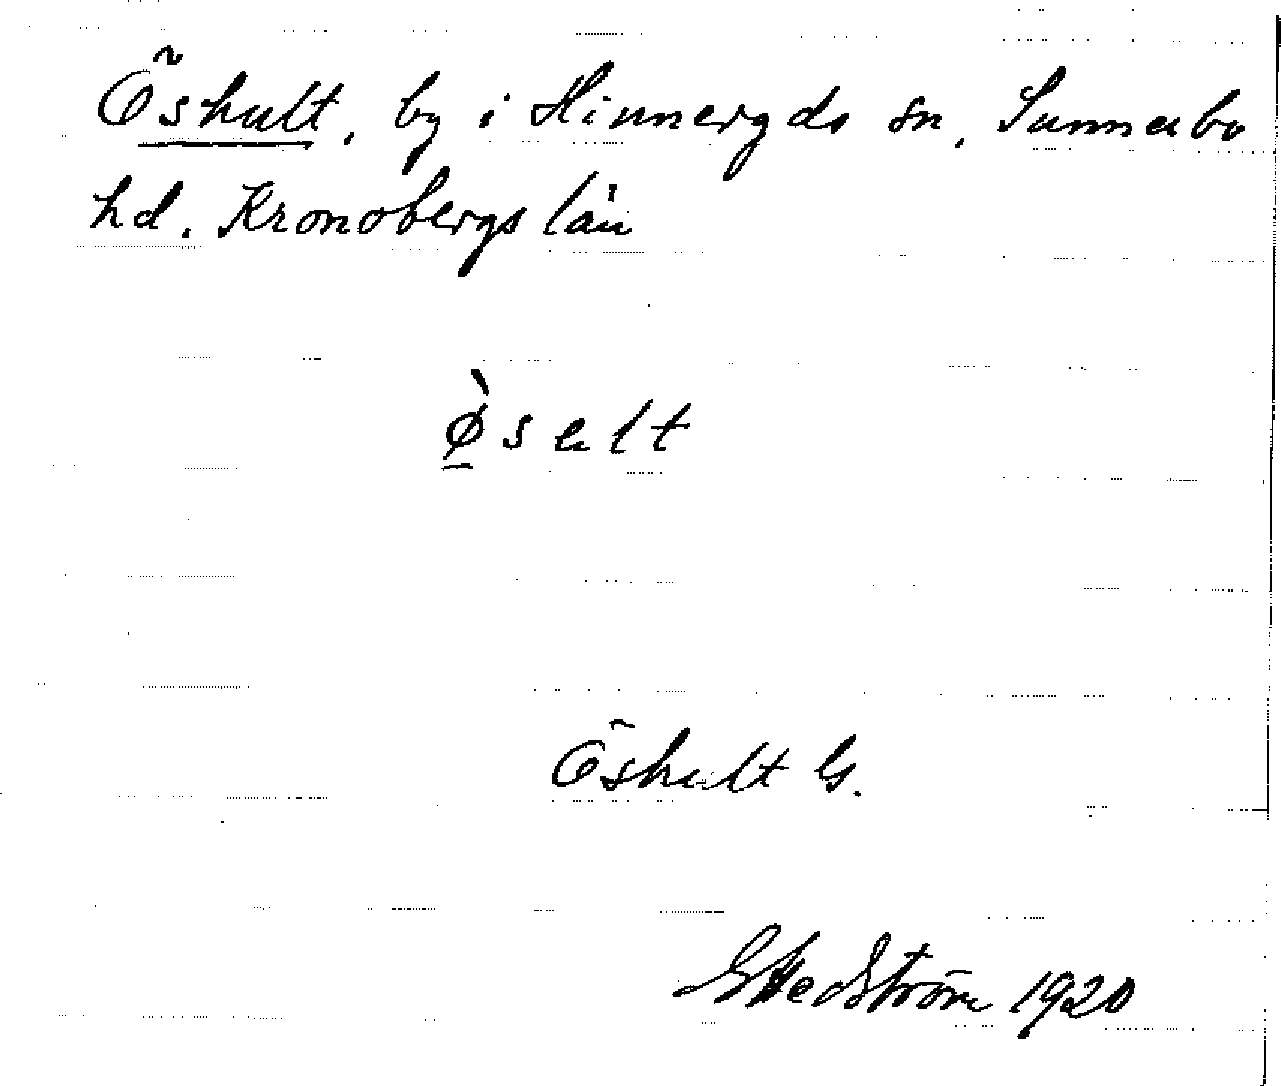 Öshult, by i Hinneryds sn, Sunnerbo
hd. Kronobergs län
ø̠̀sult
Öshult G.
G Hedström 1920